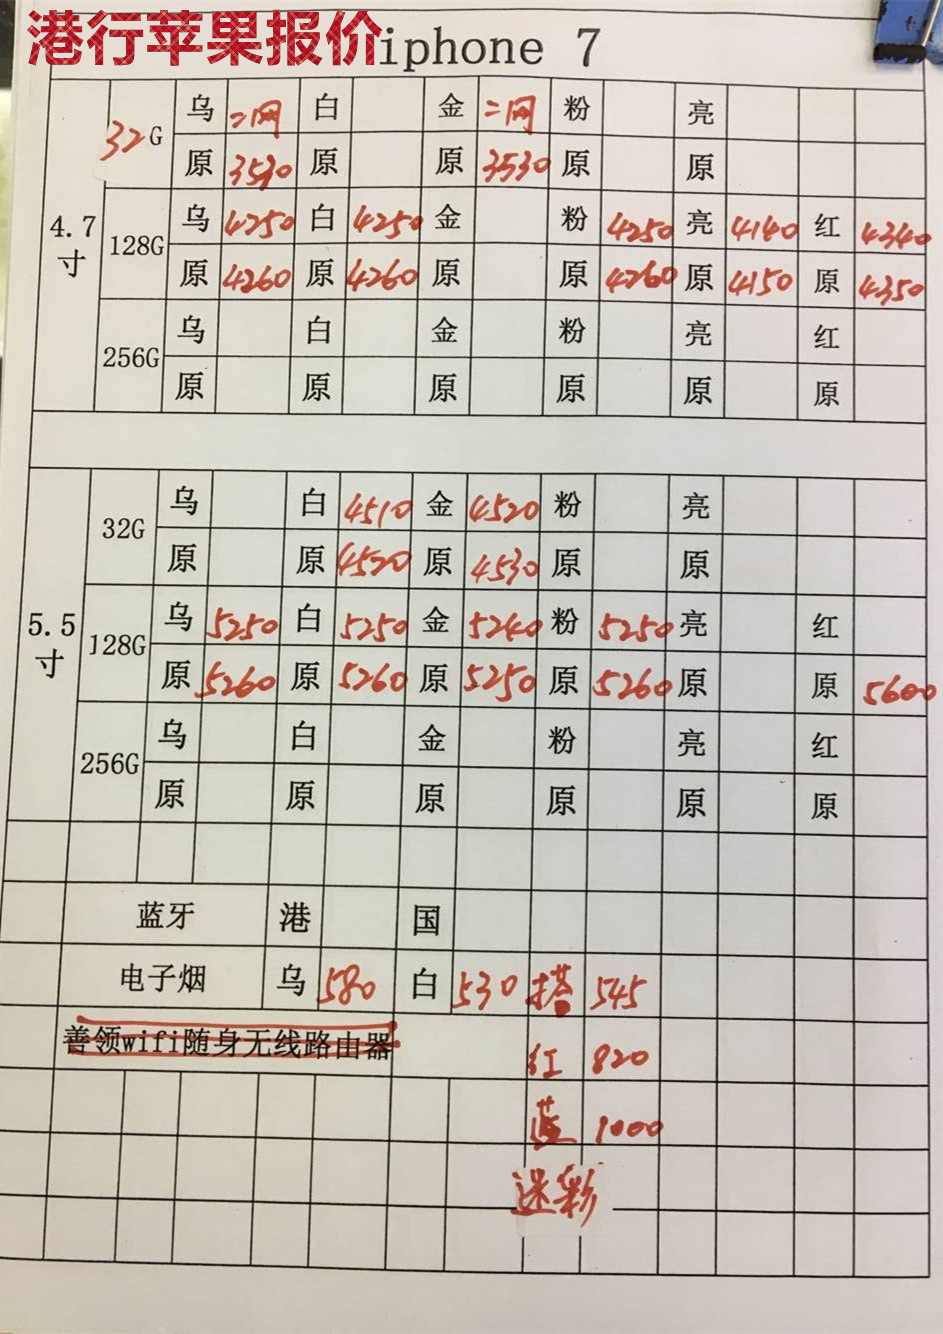 港行苹果报价
iphone 7
4.7寸 32G 乌 二网 白 金 二网 粉 亮
原 3530 原 原 3530 原 原
128G 乌 4250 白 4250 金 粉 4250 亮 4140 红 4340
原 4260 原 4260 原 原 4260 原 4150 原 4350
256G 乌 白 金 粉 亮 红
原 原 原 原 原 原
5.5寸 32G 乌 白 4510 金 4520 粉 亮
原 原 4520 原 4530 原 原
128G 乌 5250 白 5250 金 5240 粉 5250 亮 红
原 5260 原 5260 原 5250 原 5260 原 原 5600
256G 乌 白 金 粉 亮 红
原 原 原 原 原 原
蓝牙 港 国
电子烟 乌 580 白 530 搭 545
善领wifi随身无线路由器 红 820
蓝 1000
迷彩